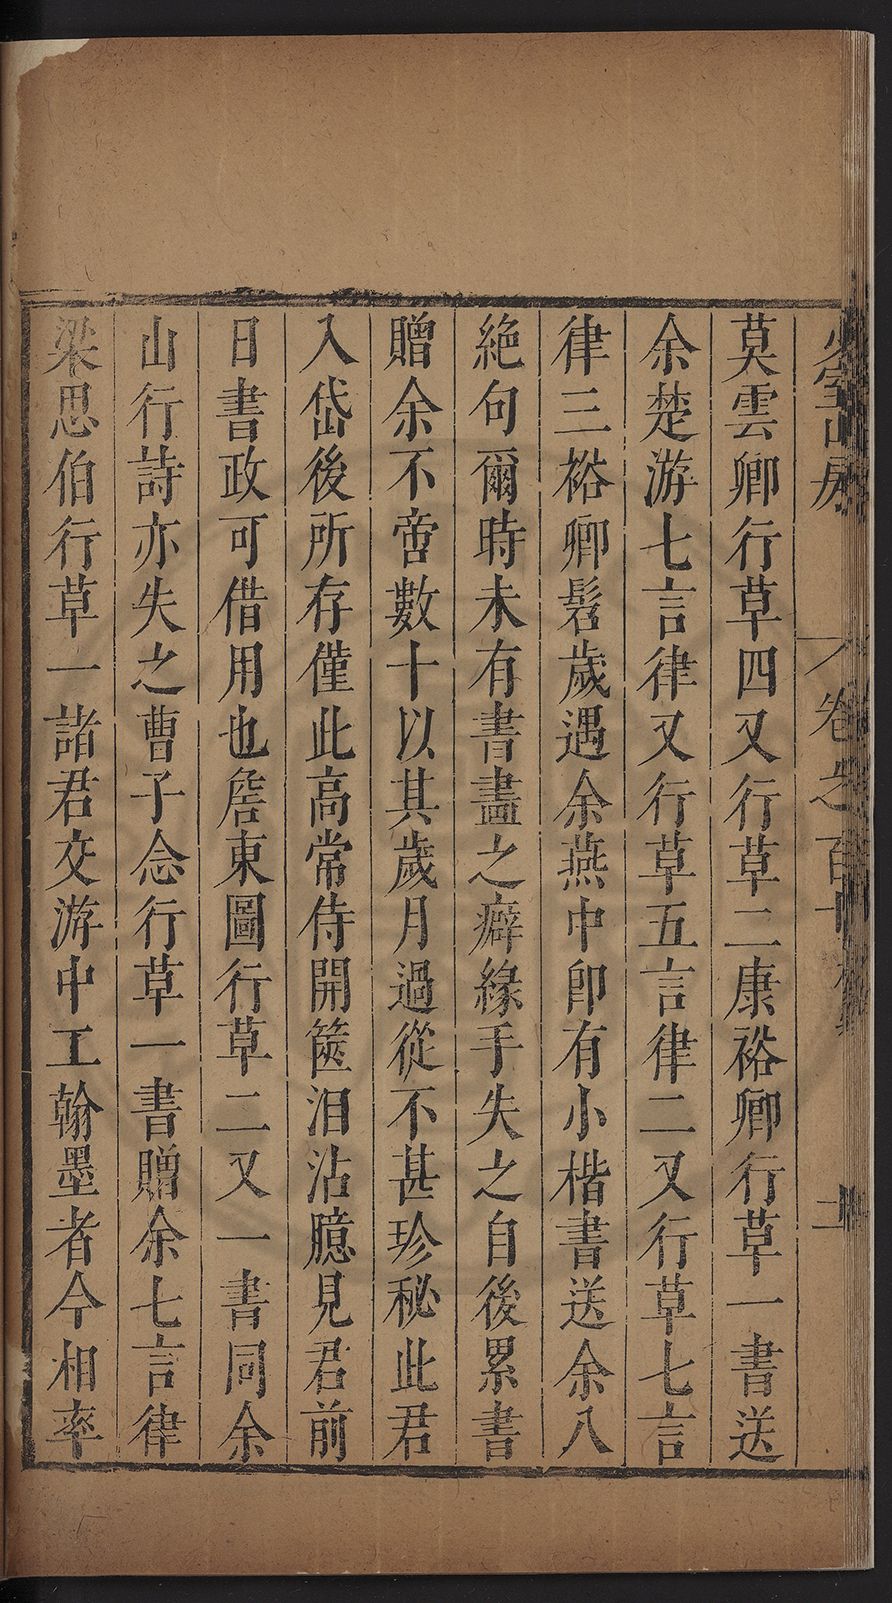 少室山房
卷之百十
莫雲卿行草四又行草二康裕卿行草一書送
余楚游七言律又行草五言律二又行草七言
律三裕卿髫歲遇余燕中卽有小楷書送余八
絶句爾時未有書畫之癖緣手失之自後累書
贈余不啻數十以其歲月過從不甚珍秘此君
入岱後所存僅此高常侍開篋泪沾臆見君前
日書政可借用也詹東圖行草二又一書同余
山行詩亦失之曹子念行草一書贈余七言律
梁思伯行草一諸君交游中工翰墨者今相率